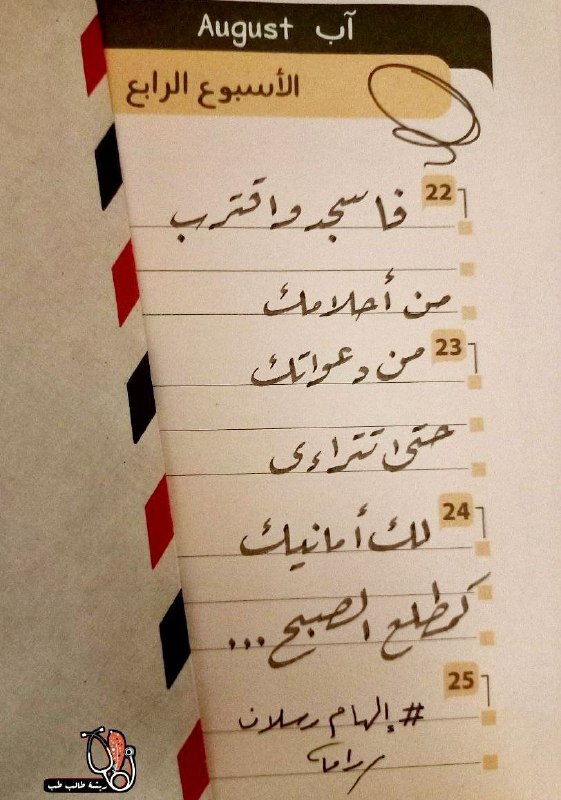 آب August
الأسبوع الرابع
22
فاسجد واقترب
من أحلامك
23
من دعواتك
حتى تتراءى
24
لك أمانيك
كمطلع الصبح...
25
#إلهام رسلان
راما
ريشة طالب طب